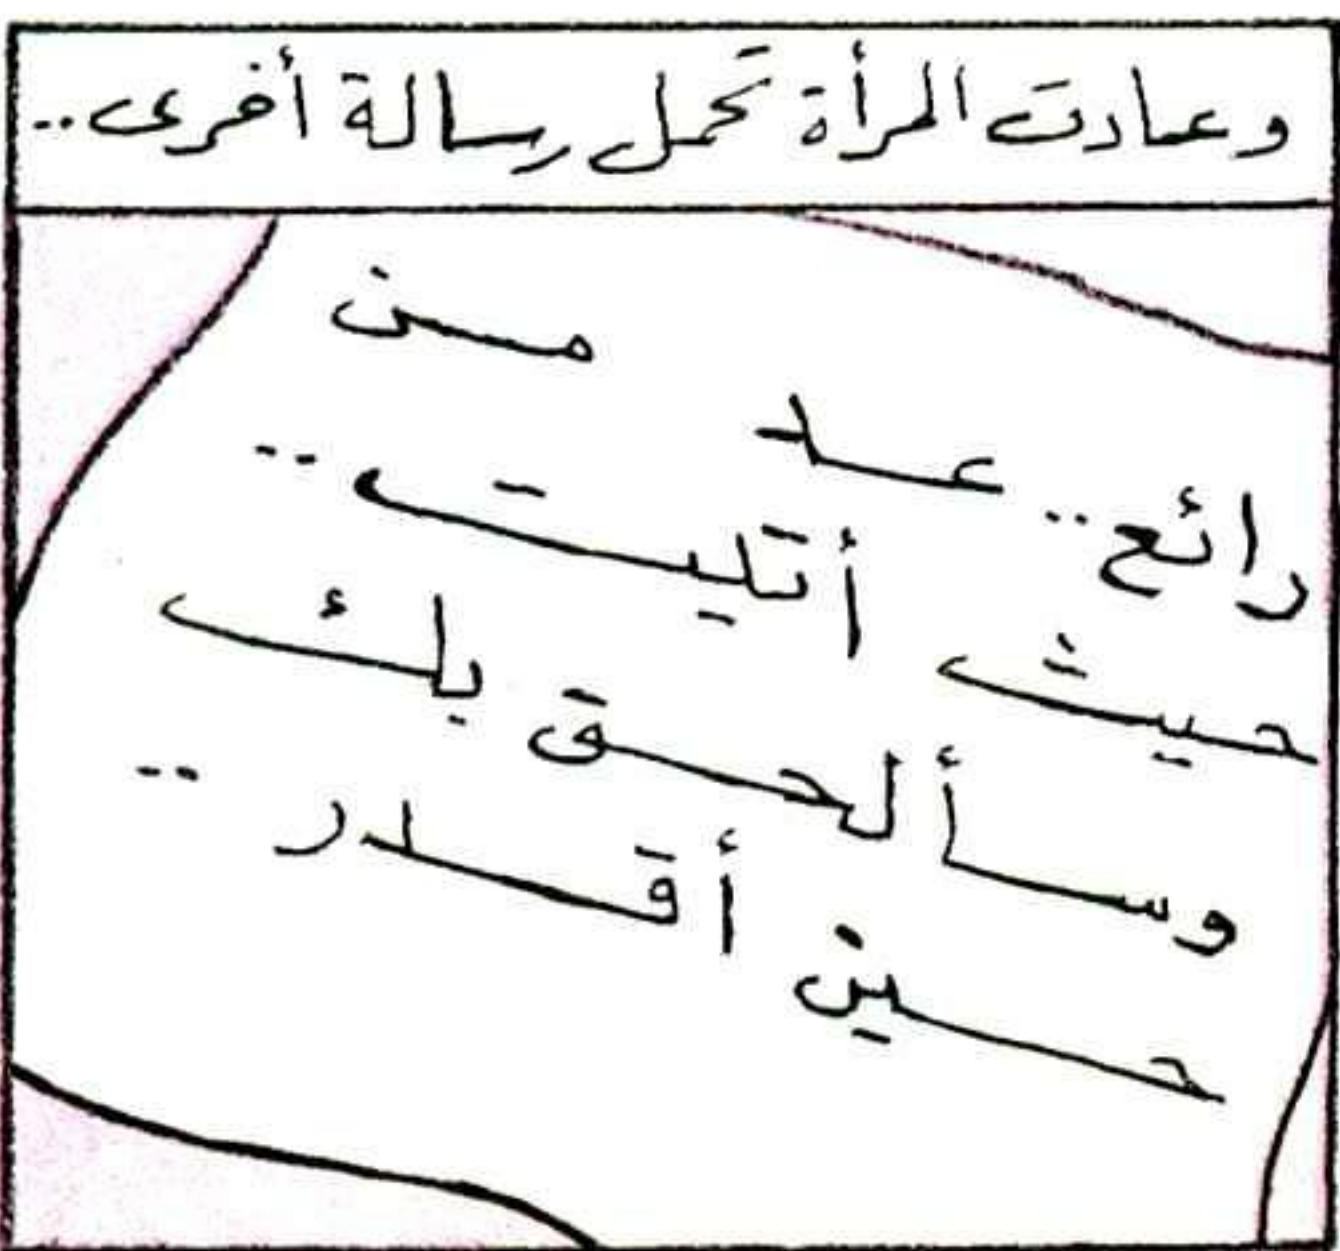 وعادت المرأة تحمل رسالة أخرى..
رائع.. عد من
حيث أتيت..
وسألحق بك
حين أقدر..